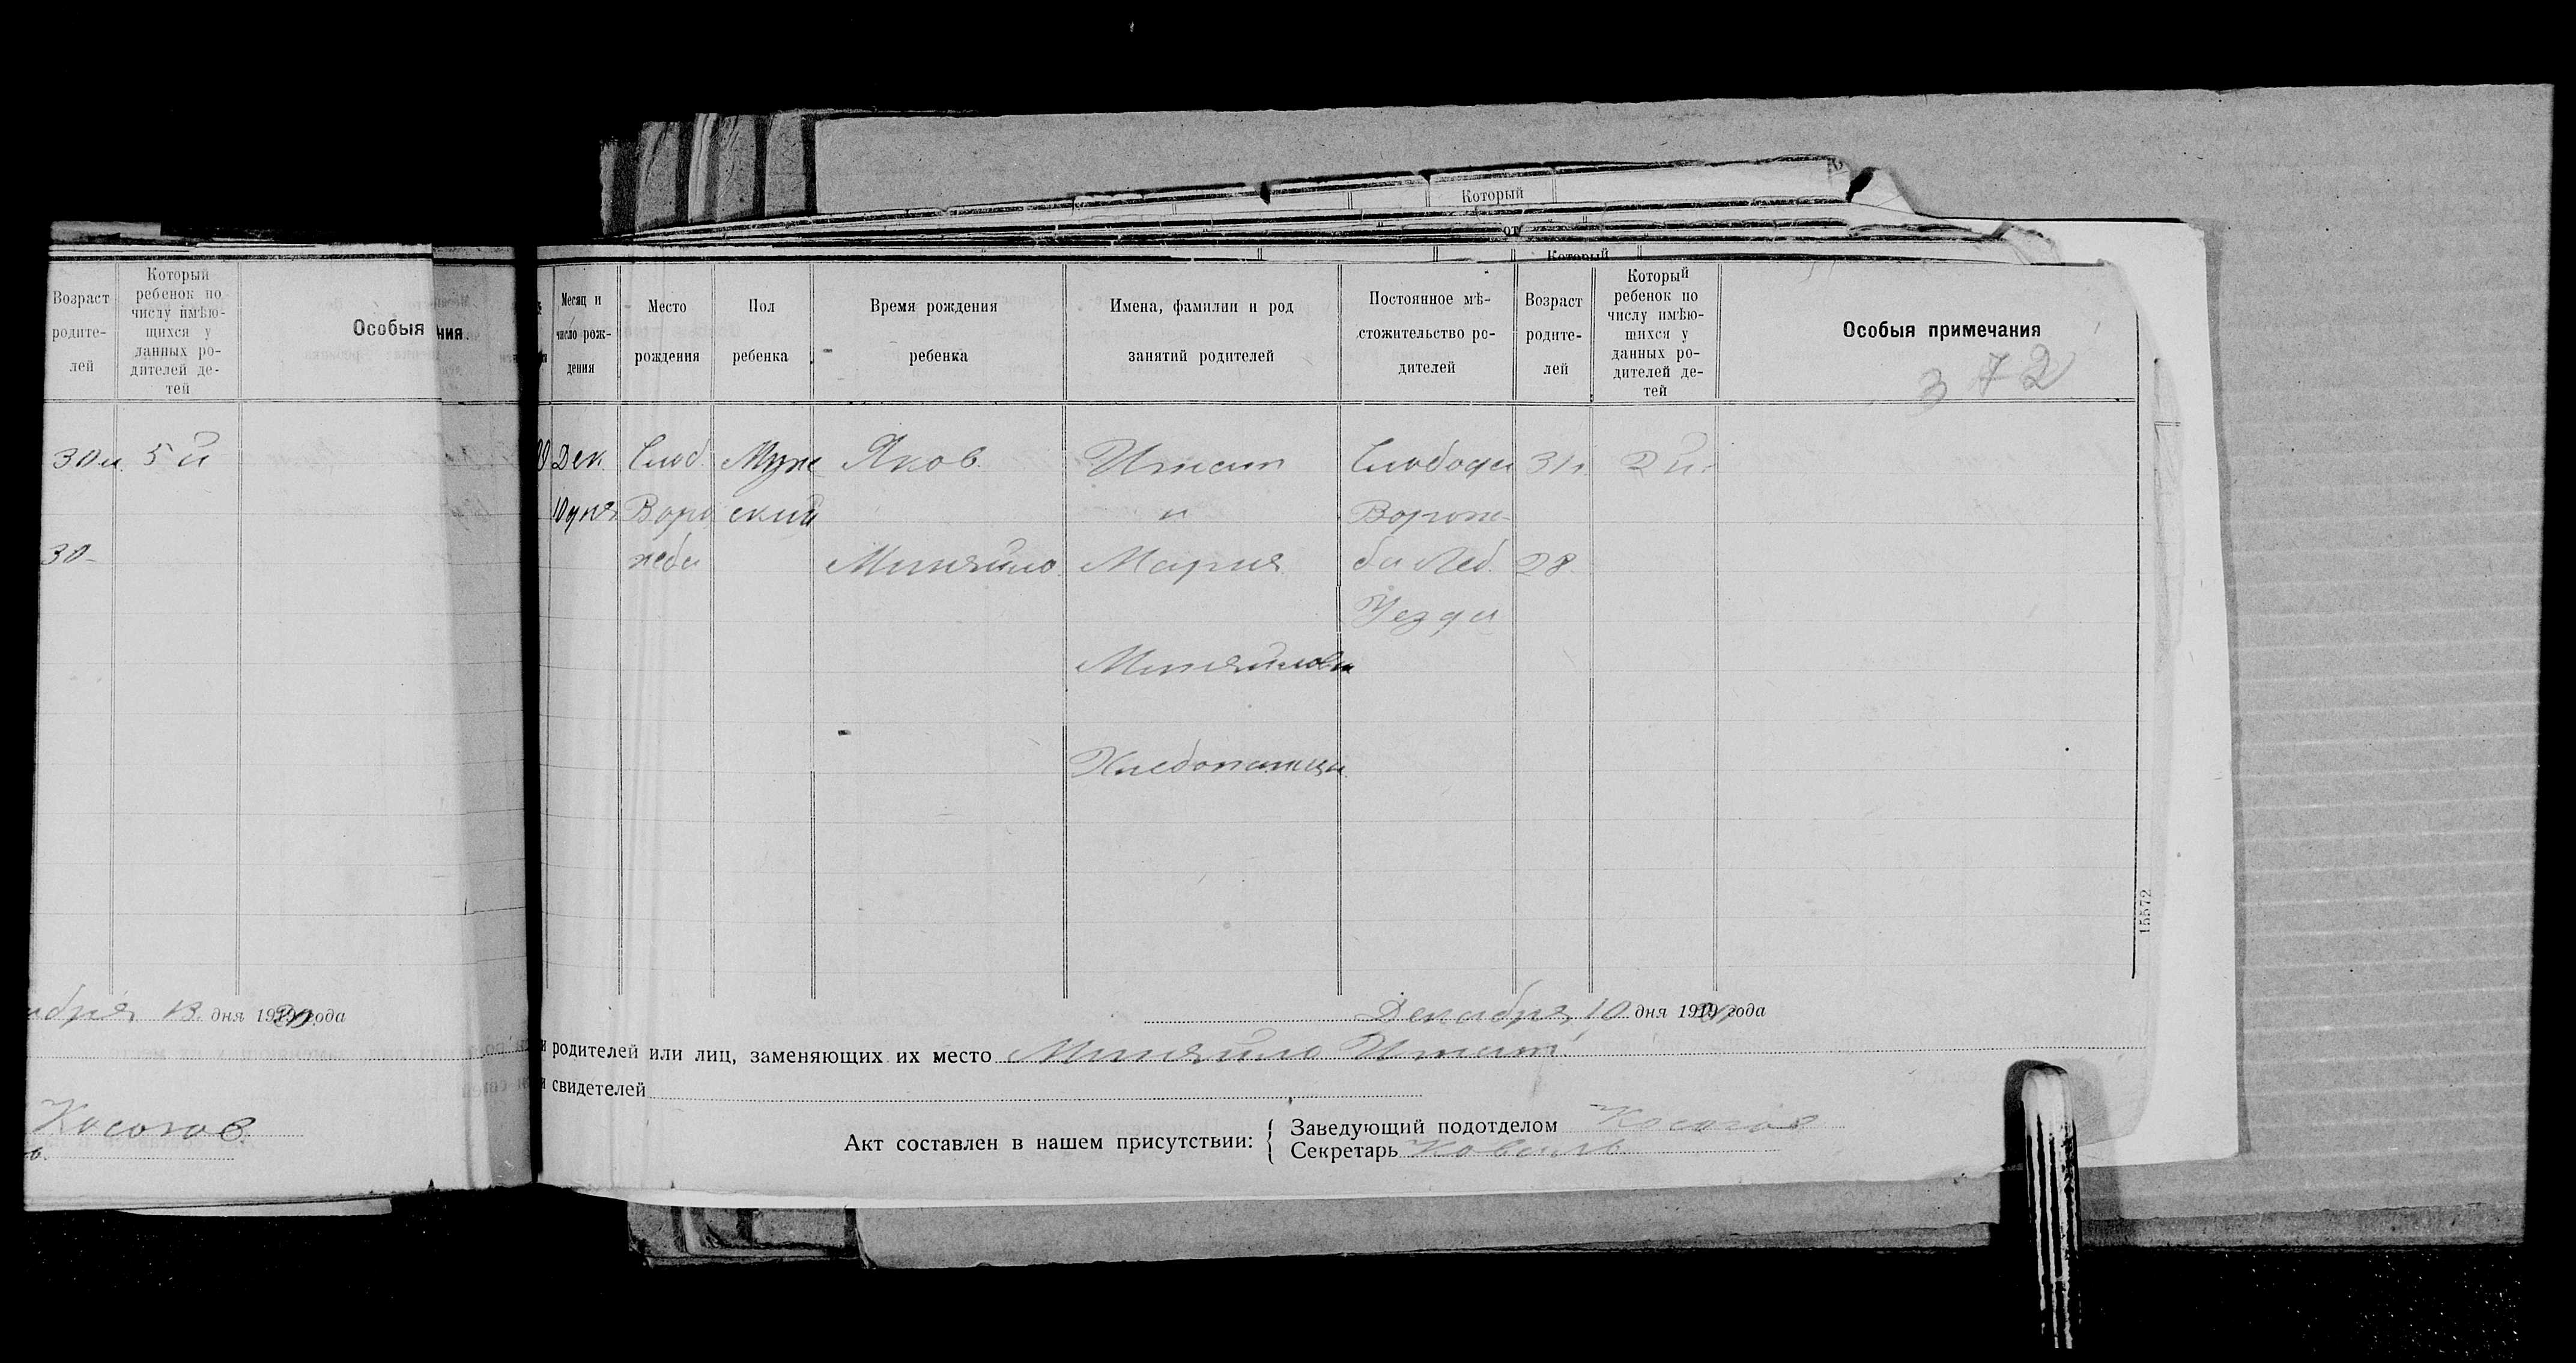 Который
Который
Возраст родите- лей
Который ребенок по числу имѣю- щихся у данных ро- дителей де- тей
Особыя
ния
30 5й
30-
13 дня 1920 года
Косогов
Месяц и число рож- дения
Место рождения
Пол ребенка
Время рождения ребенка
Имена, фамилии и род занятий родителей
Постоянное мѣ- стожительство ро- дителей
Возраст родите- лей
Который ребенок по числу имѣю- щихся у данных ро- дителей де- тей
Особыя примечания
372
Дек. Слоб. Муж Яков Игнат Слобода 31 2й
10 дня Воро ский и Вороже-
жба Миняйло Мария ба Леб. 28
Уезда
Миняйловы
Хлебопашцы
15572
Декабря 10 дня 1920 года
родителей или лиц, заменяющих их место Миняйло Игнат
свидетелей
Акт составлен в нашем присутствии:
Заведующий подотделом Косогов
Секретарь Коваль